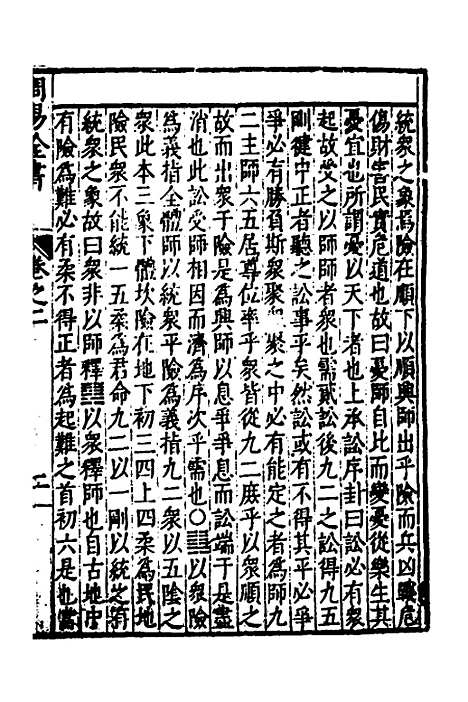 統衆之象爲險在順下以順興師出乎險而兵凶戰危
傷財害民實危道也故曰憂師自比而變憂從樂生其
憂宜也所謂憂以天下者也上承訟序卦曰訟必有衆
起故受之以師師者衆也需貳訟後九二之訟得九五
剛健中正者聽之訟事乎矣然訟或有不得其平必爭
爭必有勝負斯衆聚衆聚之中必有能定之者爲師九
二主師六五居尊位率乎衆皆從九二庶乎以衆順之
故而出衆于險是爲興師以息爭爭息而訟端于是盡
消也此訟受師相因而濟爲序次乎需也〇䷆以衆險
爲義指全體師以統衆平險爲義指九二衆以五陰之
衆此本三象下體坎險在地下初三四上四柔爲民地
險民衆不能統一五柔爲君命九二以一剛以統之有
統衆之象故曰衆非以師釋䷆以衆釋師也自古地中
有險爲難必有柔不得正者爲起難之首初六是也當
周易全書
卷之二